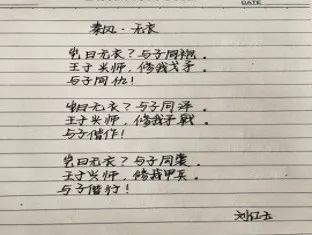 秦风·无衣
岂曰无衣？与子同袍．
王于兴师，修我戈矛．
与子同仇！
岂曰无衣？与子同泽．
王于兴师，修我矛戟．
与子偕作！
岂曰无衣？与子同裳．
王于兴师，修我甲兵．
与子偕行！